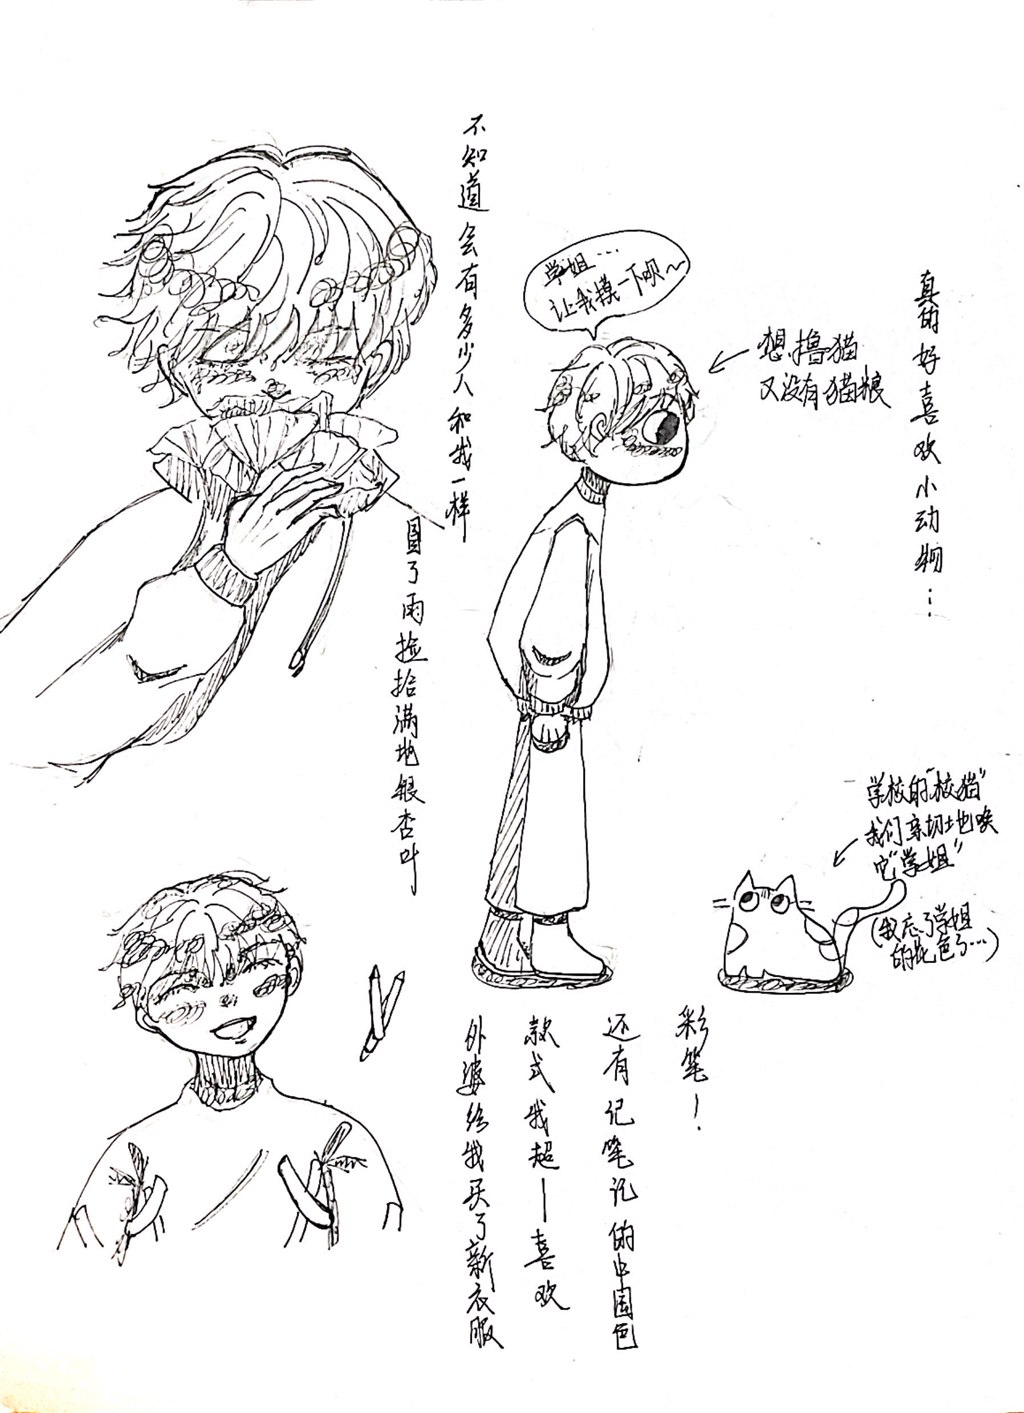 不知道会有多少人和我一样
冒了雨捡拾满地银杏叶
学姐…
让我摸一下呗~
想撸猫
又没有猫粮
真的好喜欢小动物…
学校的“校猫”
我们亲切地唤
它“学姐”
(我忘了学姐
的花色了…)
外婆给我买了新衣服
款式我超一喜欢
还有记笔记的中国色
彩笔！